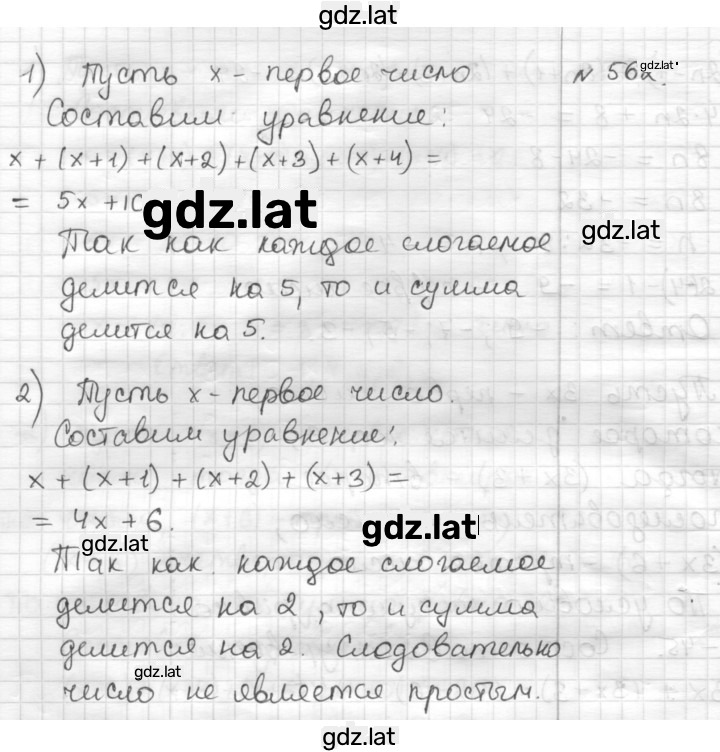 gdz.lat
1) Пусть x - первое число
№ 562.
gdz.lat
Составим уравнение:
x + (x+1) + (x+2) + (x+3) + (x+4) =
= 5x + 10
gdz.lat
Так как каждое слогаемое
gdz.lat
делится на 5, то и сумма
делится на 5.
2) Пусть x - первое число.
Составим уравнение:
x + (x+1) + (x+2) + (x+3) =
= 4x + 6.
gdz.lat
gdz.lat
Так как каждое слогаемое
делится на 2, то и сумма
делится на 2. Следовательно
gdz.lat
число не является простым.
gdz.lat